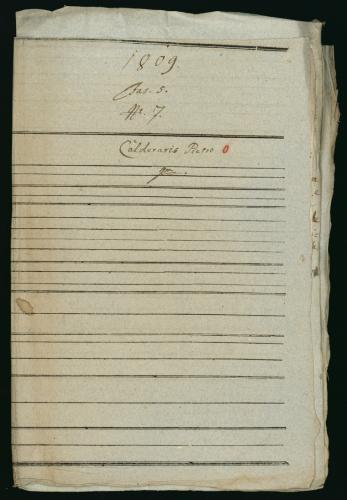 1809.
Fas. 5.
N. 7.
Calderaris Pietro 0